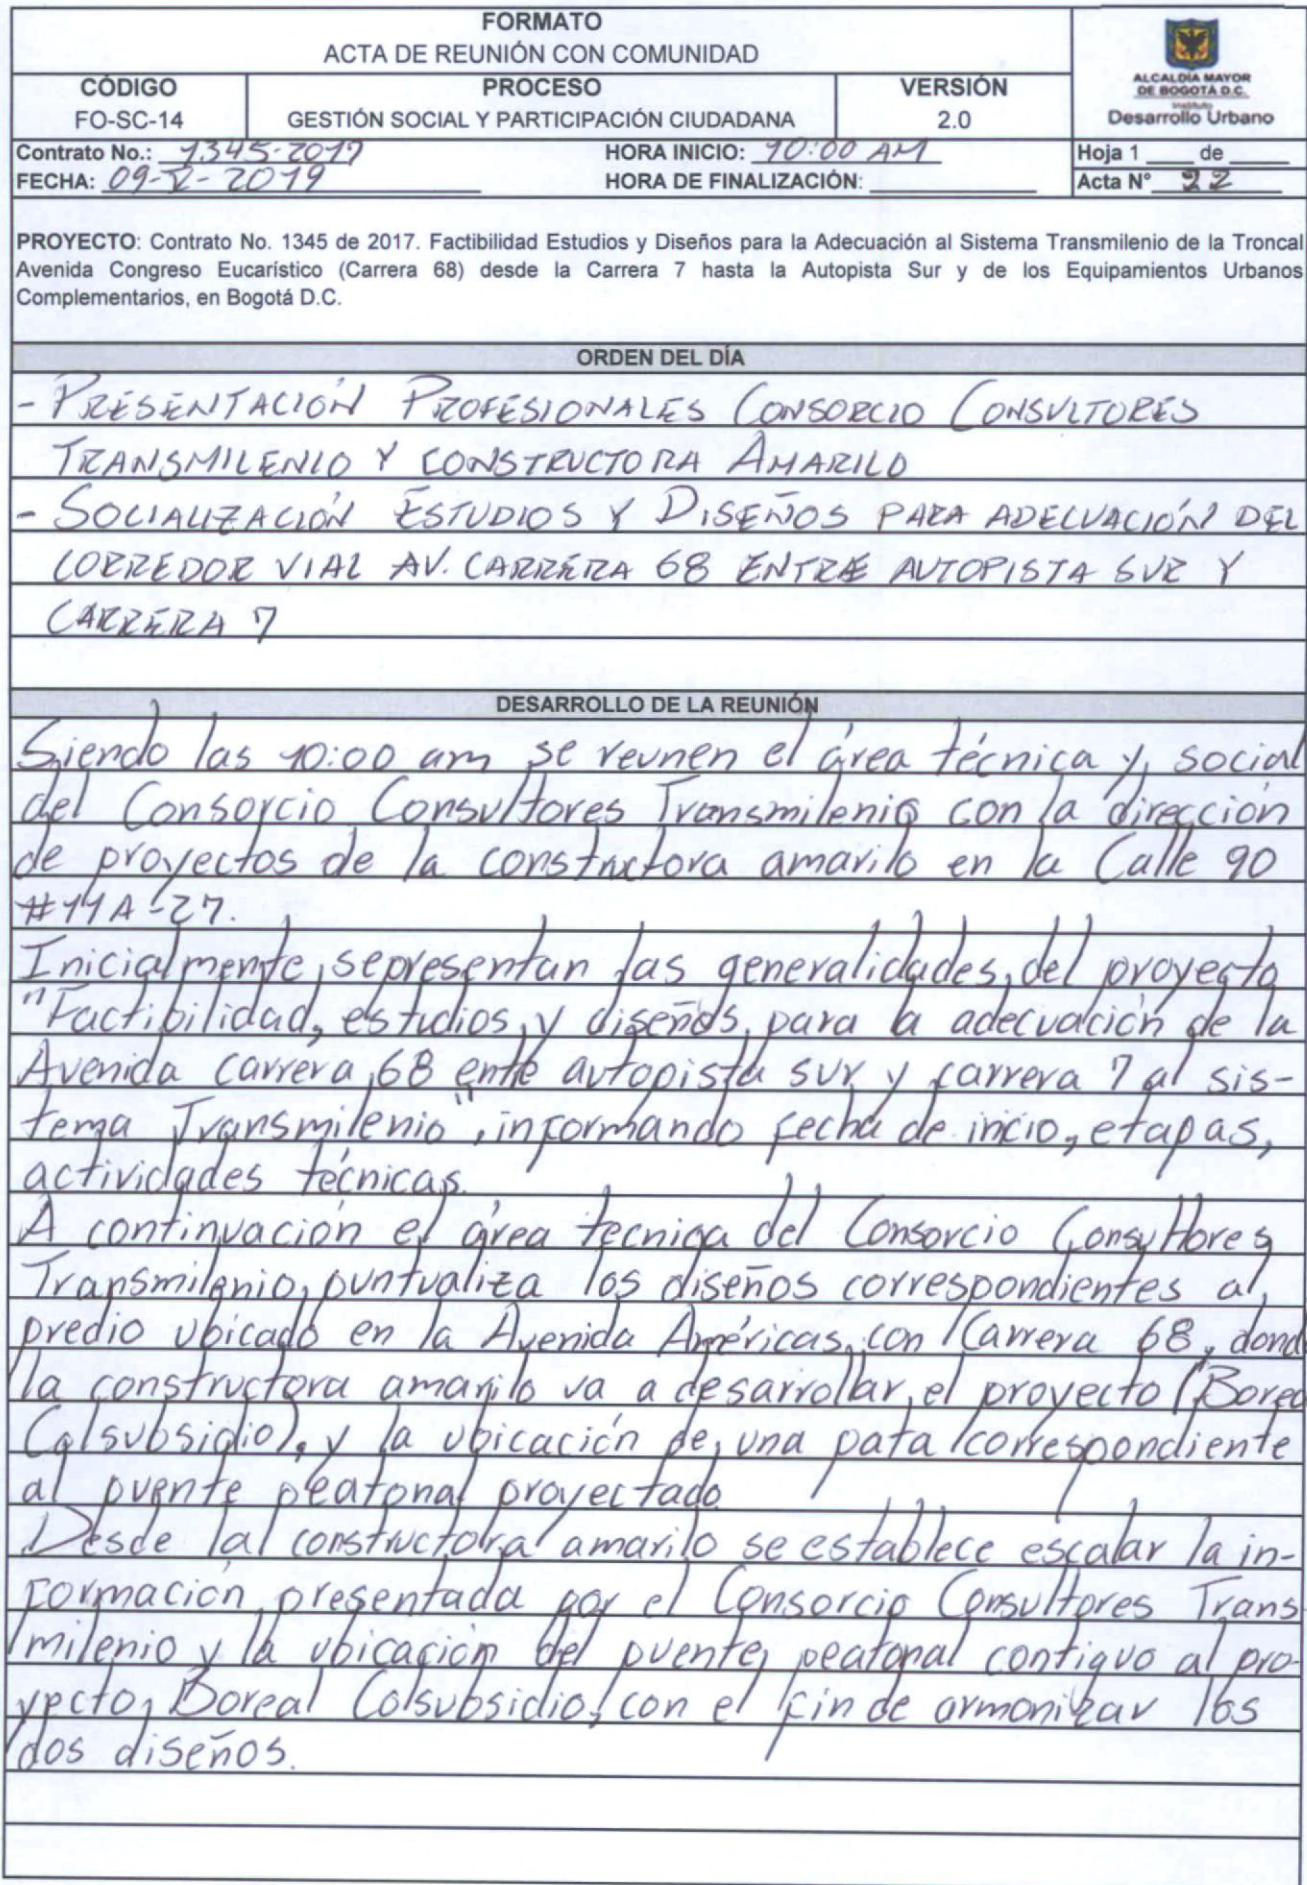 FORMATO
ACTA DE REUNIÓN CON COMUNIDAD
CÓDIGO
FO-SC-14
PROCESO
GESTIÓN SOCIAL Y PARTICIPACIÓN CIUDADANA
VERSIÓN
2.0
ALCALDÍA MAYOR
DE BOGOTÁ D.C.
Instituto
Desarrollo Urbano
Contrato No.: 1345-2017 HORA INICIO: 10:00 AM Hoja 1 ____ de ____
FECHA: 09-V-2019 HORA DE FINALIZACIÓN: Acta N° 22
PROYECTO: Contrato No. 1345 de 2017. Factibilidad Estudios y Diseños para la Adecuación al Sistema Transmilenio de la Troncal
Avenida Congreso Eucarístico (Carrera 68) desde la Carrera 7 hasta la Autopista Sur y de los Equipamientos Urbanos
Complementarios, en Bogotá D.C.
ORDEN DEL DÍA
- PRESENTACIÓN PROFESIONALES CONSORCIO CONSULTORES
TRANSMILENIO Y CONSTRUCTORA AMARILO
- SOCIALIZACIÓN ESTUDIOS Y DISEÑOS PARA ADECUACIÓN DEL
CORREDOR VIAL AV. CARRERA 68 ENTRE AUTOPISTA SUR Y
CARRERA 7
DESARROLLO DE LA REUNIÓN
Siendo las 10:00 am se reunen el área técnica y social
del Consorcio Consultores Transmilenio con la dirección
de proyectos de la constructora amarilo en la Calle 90
#11A-27.
Inicialmente, se presentan las generalidades del proyecto
"Factibilidad, estudios y diseños para la adecuación de la
Avenida carrera 68 ente autopista sur y carrera 7 al sis-
tema Transmilenio", informando fecha de incio, etapas,
actividades técnicas.
A continuación el área tecnica del Consorcio Consultores
Transmilenio, puntualiza los diseños correspondientes al
predio ubicado en la Avenida Américas con Carrera 68, dond
la constructora amarilo va a desarrollar el proyecto (Borea
Colsubsidio), y la ubicación de una pata correspondiente
al puente peatonal proyectado
Desde la constructora amarilo se establece escalar la in-
formación presentada por el Consorcio Consultores Trans-
milenio y la ubicación del puente peatonal contiguo al pro-
yecto Boreal Colsubsidio, con el fin de armonizar los
dos diseños.